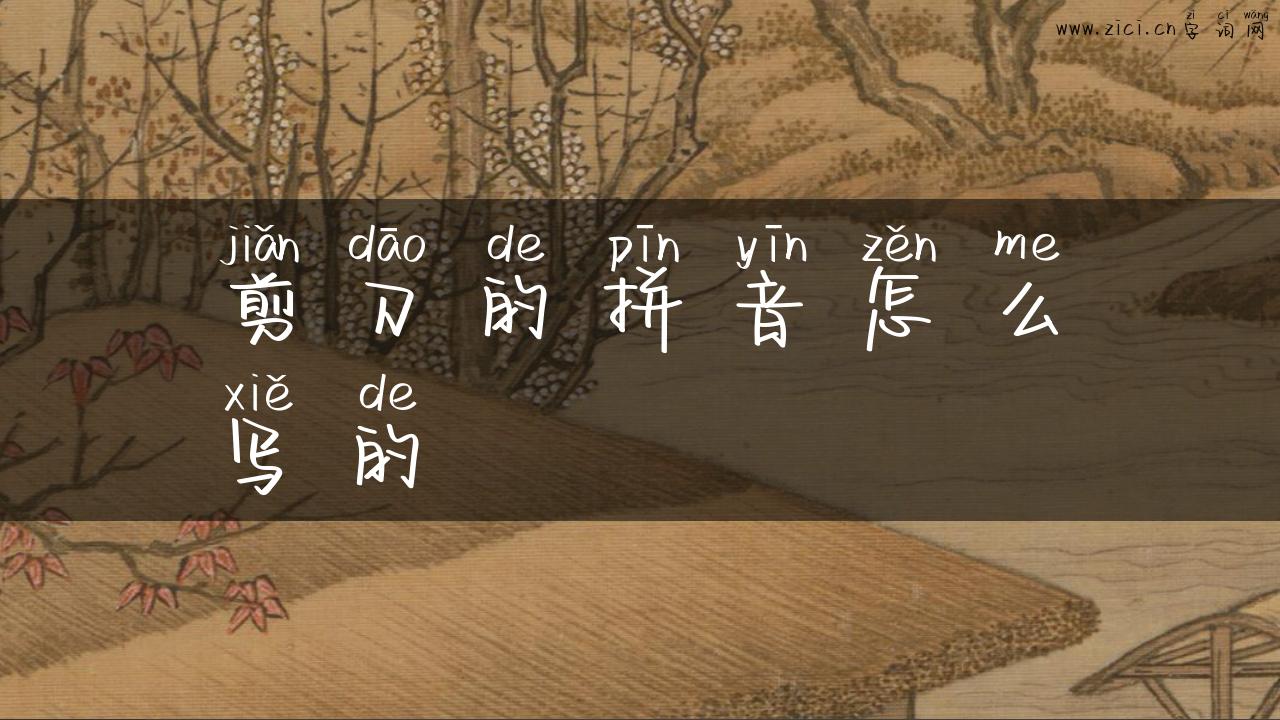 zì cí wǎng
www.zici.cn 字词网
jiǎn dāo de pīn yīn zěn me
剪刀的拼音怎么
xiě de
写的